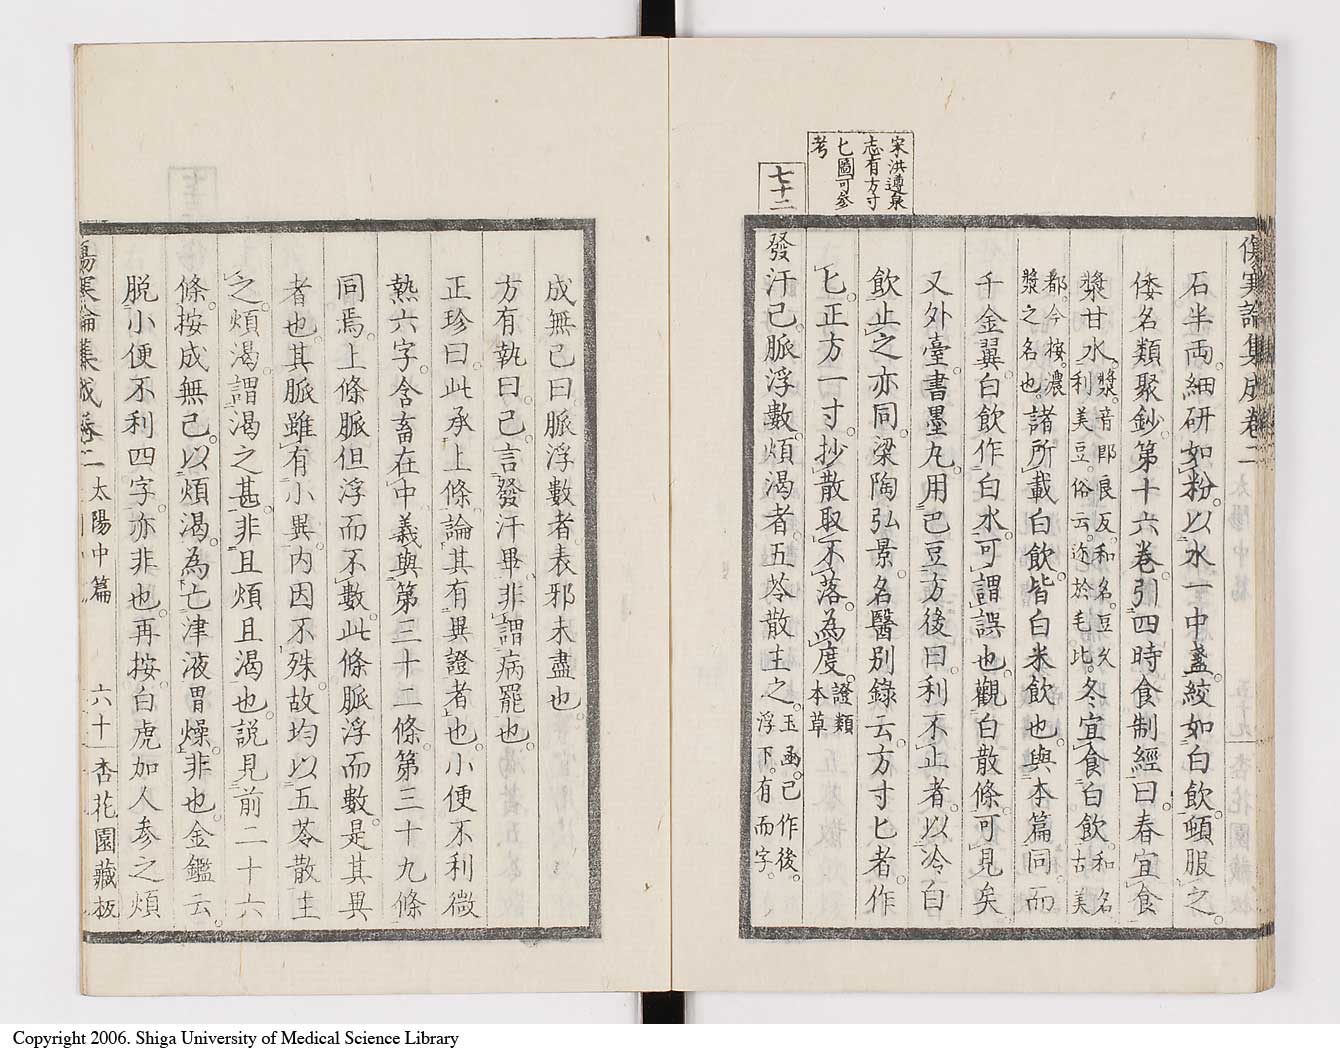 傷寒論集成卷二
石半兩。細研如粉。以水一中盞。絞如白飲。頓服之。
倭名類聚鈔。第十六卷。引四時食制經曰。春宜食
漿甘水。漿。音即良反。和名。豆久利美豆。俗云。迩於毛比。冬宜食白飲。和名古美
都。今按。濃漿之名也。諸所載白飲。皆白米飲也。與本篇同。而
千金翼。白飲作白水。可謂誤也。觀白散條。可見矣
又外臺。書墨丸。用巴豆方後曰。利不止者。以冷白
飲止之。亦同。梁陶弘景名醫別錄云。方寸匕者。作
匕。正方一寸。抄散取不落。為度。證類本草
宋洪遵泉
志有方寸
匕圖可參
考
七十二
發汗已。脈浮數。煩渴者。五苓散主之。玉函。已作後。浮下。有而字。
成無己曰。脈浮數者。表邪未盡也。
方有執曰。已。言發汗畢。非謂病罷也。
正珍曰。此承上條。論其有異證者也。小便不利微
熱六字。含畜在中義。與第三十二條。第三十九條
同焉。上條脈但浮而不數。此條脈浮而數。是其異
者也。其脈雖有小異。內因不殊。故均以五苓散主
之。煩渴。謂渴之甚。非且煩且渴也。說見前二十六
條。按成無己。以煩渴。為亡津液胃燥。非也。金鑑云。
脫小便不利四字。亦非也。再按。白虎加人參之煩
傷寒論集成卷二 太陽中篇 六十 杏花園藏板